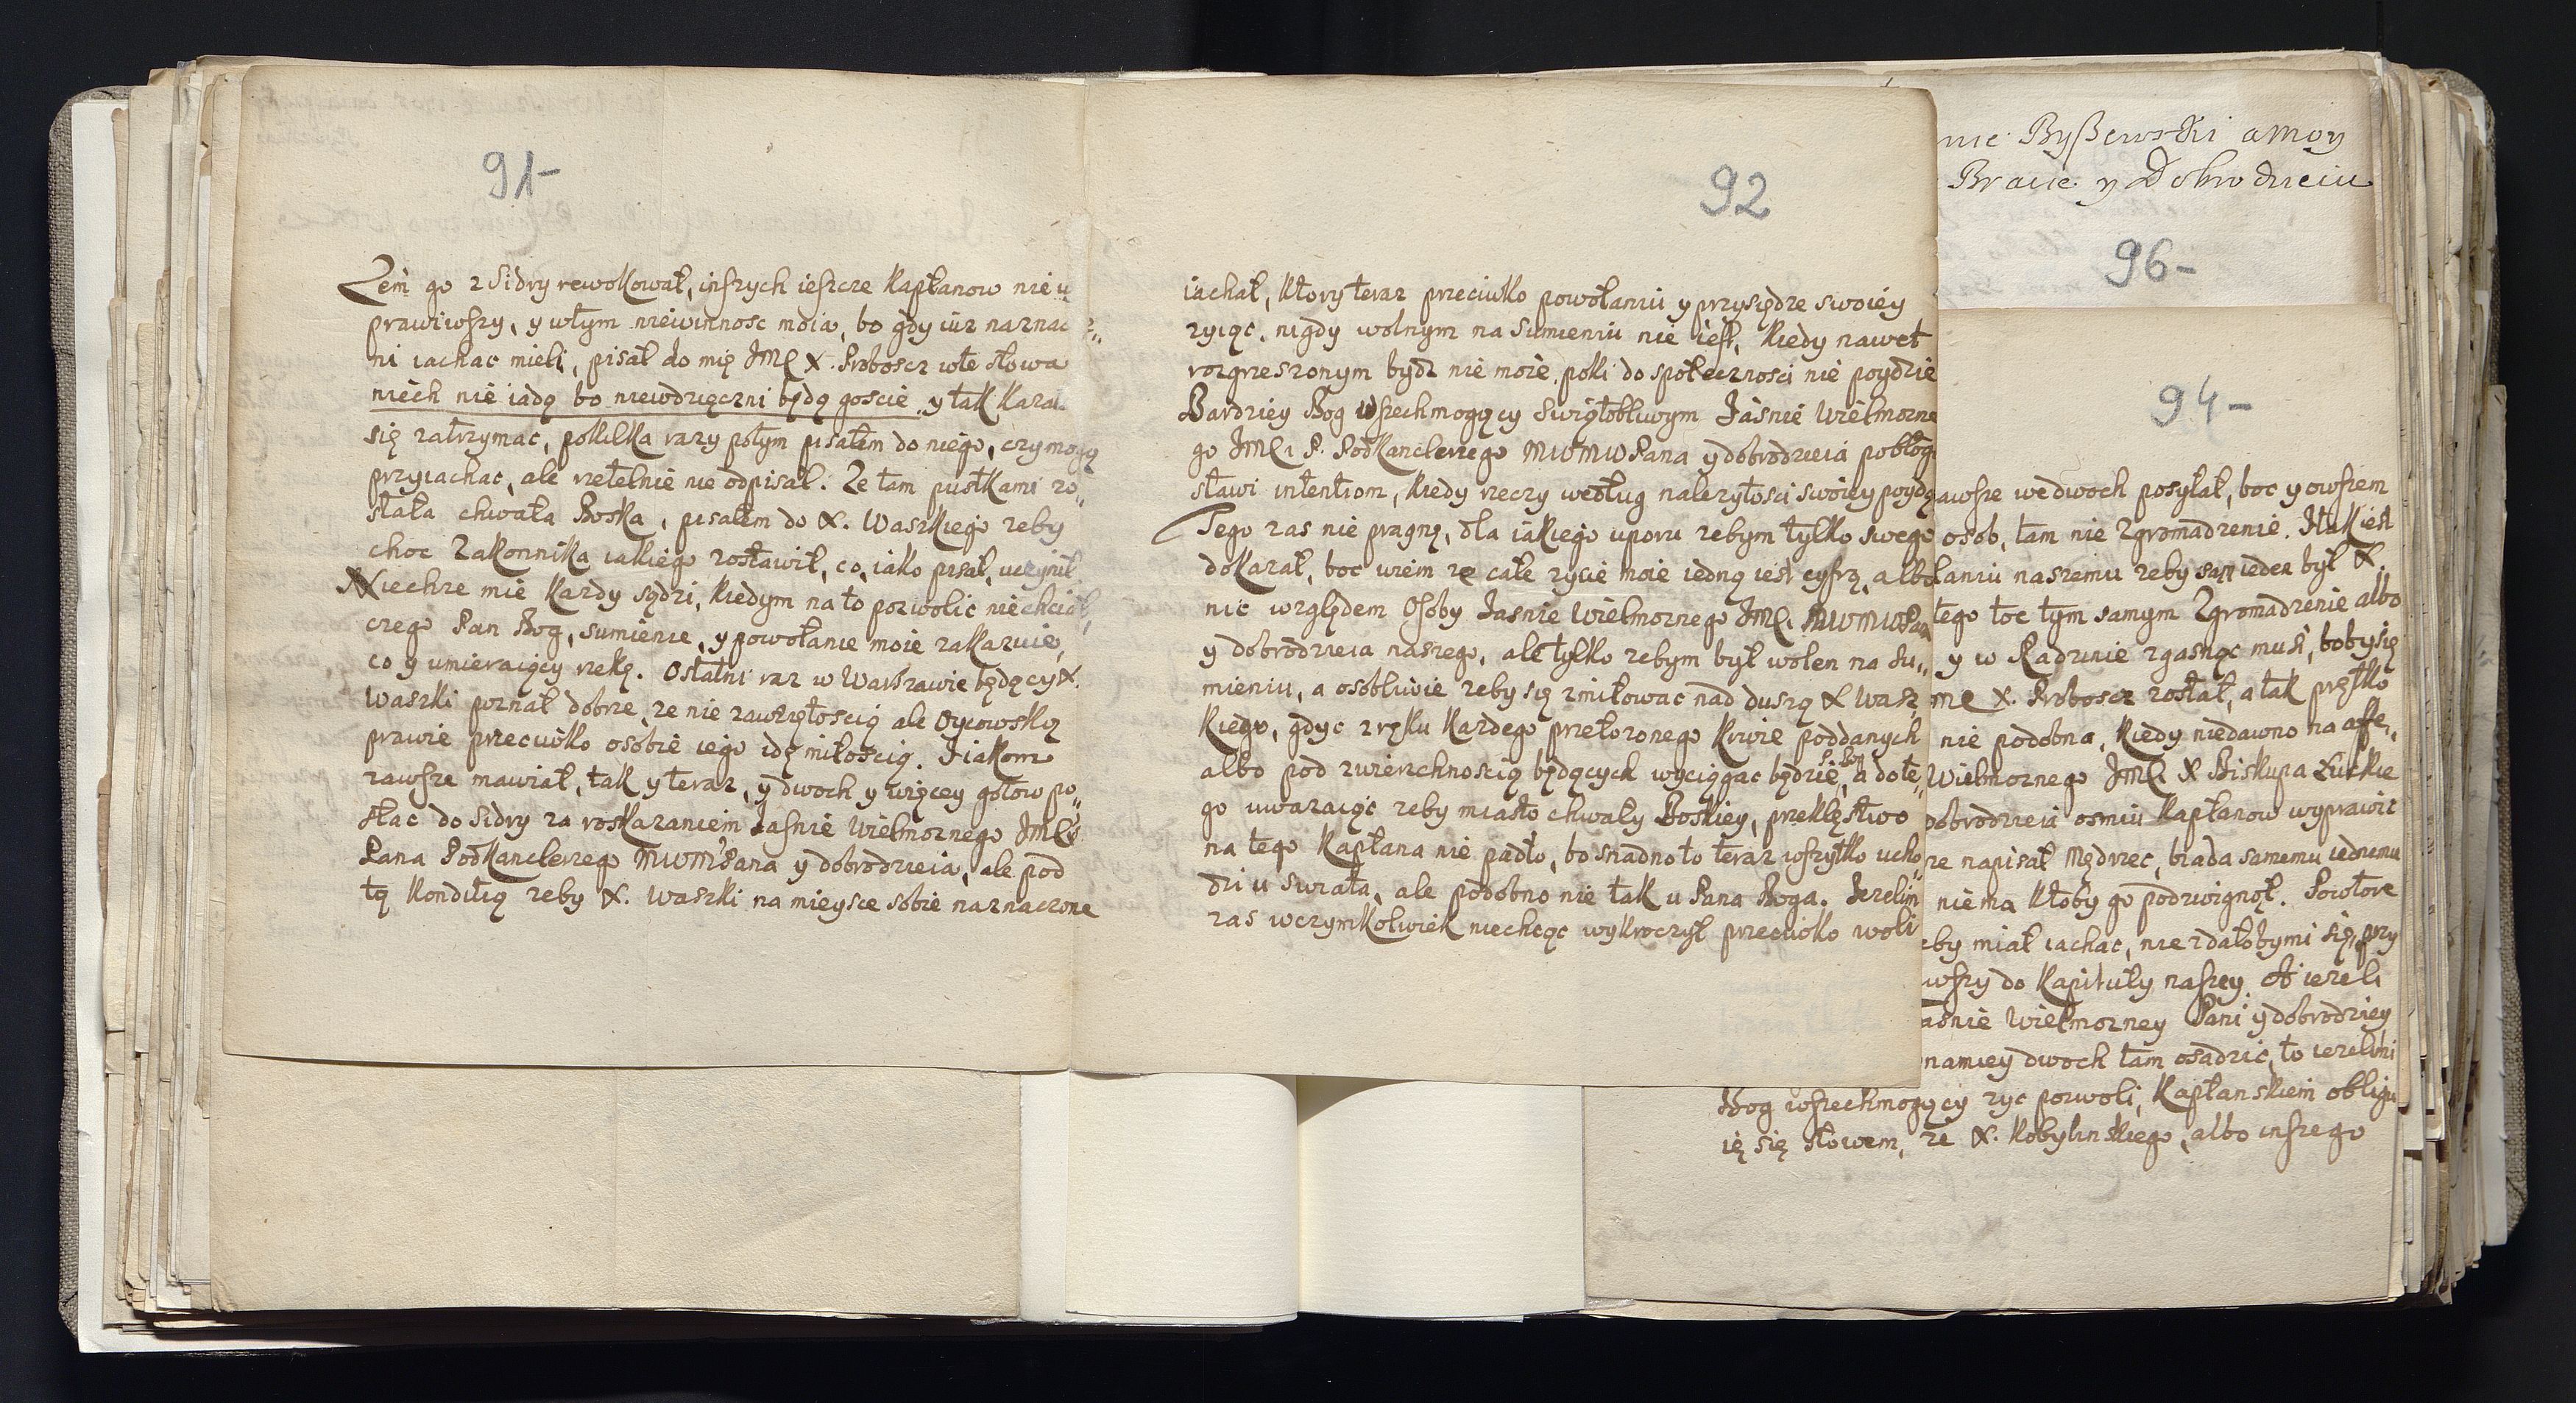 91-
Zem go z Sidry rewokował, inszych ieszcze Kapłanow nie u
prawiwszy, y wtym niewinnosc moia, bo gdy iuz naznac
ni iachac mieli, pisał do mię JMę X. Proboscz wte słowa
niech nie iadą bo niewdzięczni będą goscie, y tak kazał
się zatrzymac, pokilka razy potym pisałem do niego, czy mogą
przyiachac, ale rzetelnie nie odpisał. Ze tam pustkami zo„
stała chwała Boska, pisałem do X. Waszkiego zeby
choc Zakonnika iakiego zostawił, co, iako pisał, uczynił.
Niechze mie kazdy sądzi, kiedym na to pozwolic niechciał,
czego Pan Bog, sumienie, y powołanie moie zakazuie,
co y umieraiący rzekę. Ostatni raz w Warszawie będący X.
Waszki poznał dobrze, ze nie zawziętoscią ale Oycowską
prawie przeciwko osobie iego idę miłoscią. Iiakom
zawsze mawiał, tak y teraz, y dwoch y więcey gotow po„
słac do Sidry za roskazaniem Jasnie Wielmoznego JMCi
Pana Podkanclerzego MWMPana y dobrodzieia, ale pod
tą kondilią zeby X. Waszki na mieysce sobie naznaczone
92
iachał, ktory teraz przeciwko powołaniu y przysiędze swoiey
zyiąc, nigdy wolnym na sumieniu nie iest, kiedy nawet
rozgrzeszonym bydz nie moze, poki do społecznosci nie poydzie
Bardziey Bog wszechmogący swiętobliwym Jasnie Wielmozne
go JMCi P. Podkanclerzego MWMWPana y dobrodzieia pobłogo
sławi intentiom, kiedy rzeczy według nalezytosci swoiey poydą
Tego zas nie pragnę, dla iakiego uporu zebym tylko swego
dokazał, boc wiem ze całe zycie moie iedną iest cyfrą, albo
nic względem Osoby Jasnie Wielmoznego JMCi MWMWPana
y dobrodzieia naszego, ale tylko zebym był wolen na su„
mieniu, a osobliwie zeby się zmiłowac nad duszą X Wasz
kiego, gdyc z ręku kazdego przełozonego krwie poddanych
albo pod zwierzchnoscią będących wyciągac będzie P. Bog, a do te„
go uwazaiąc zeby miasto chwały Boskiey, przeklęstwo
na tego Kapłana nie padło, bo snadno to teraz wszytko ucho„
dzi u swiata, ale podobno nie tak u Pana Boga. Jezelim
zas wczymkolwiek niechcąc wykroczył przeciwko woli
nie Byszewski a moy
Bracie y Dobrodzieiu
96-
94-
awsze we dwoch posyłał, boc y owszem
osob, tam nie Zgromadzenie. Itak iest
łaniu naszemu zeby sam ieden był X.
tego toc tym samym Zgromadzenie albo
y w Radzinie zgasnąc musi, boby się
me X. Proboscz został, a tak prętko
nie podobna, kiedy niedawno na affe„
Wielmoznego JMCi X Biskupa Łuckie
dobrodzieia osmiu Kapłanow wyprawic
ze napisał Mędrzec, biada samemu iednemu
niema ktoby go podzwignął. Powtore
eby miał iachac, nie zdałobymi się, przy
wszy do Kapituły naszey. A iezeli
asnie Wielmozney Pani y dobrodziey
namiey dwoch tam osadzic, to iezelimi
Bog wszechmogący zyc pozwoli, Kapłanskiem obligu
ię się słowem, ze X. Kobylinskiego, albo inszego